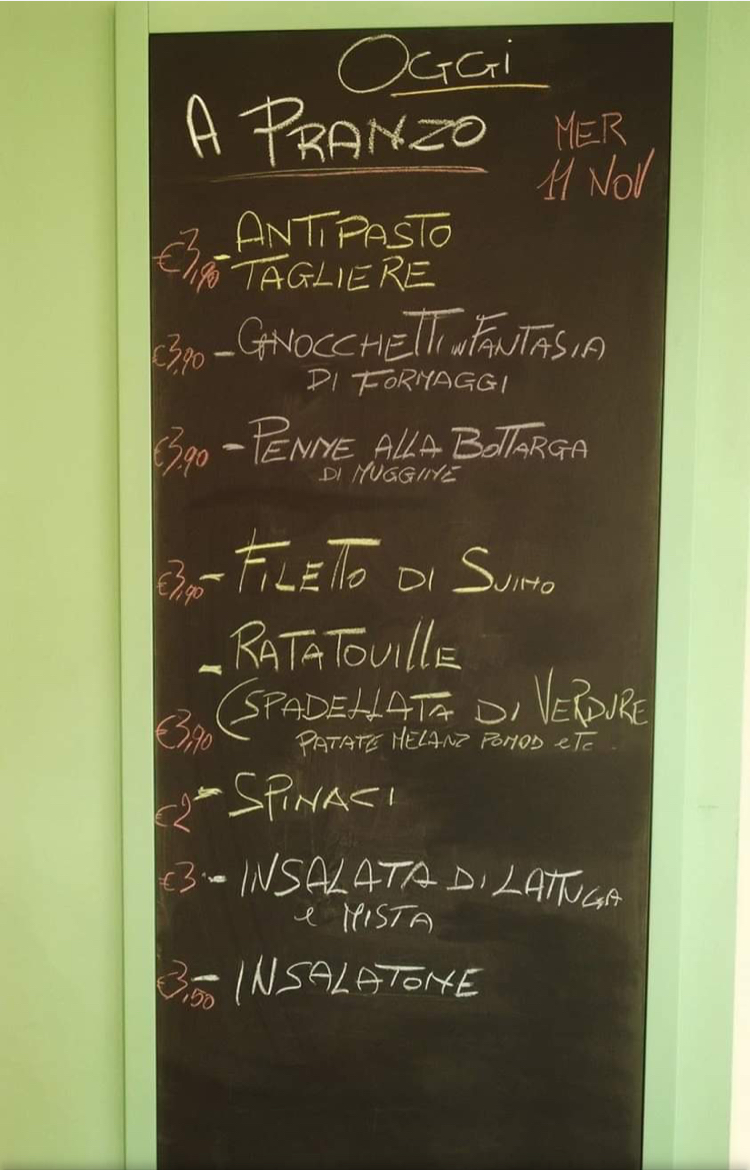 OGGi
A PRANZO
MER
11 NOV
€3,90 - ANTIPASTO
TAGLIERE
€3,90 - GNOCCHETTI in FANTASIA
DI FORMAGGI
€3,90 - PENNE ALLA BOTTARGA
DI MUGGINE
€3,90 - FILETTO DI SUINO
- RATATOUILLE
€3,90 (SPADELLATA Di VERDURE
PATATE MELANZ POMOD eTc.
€2 - SPINACI
€3 - INSALATA Di LATTUGA
e MISTA
€3,50 - INSALATONE